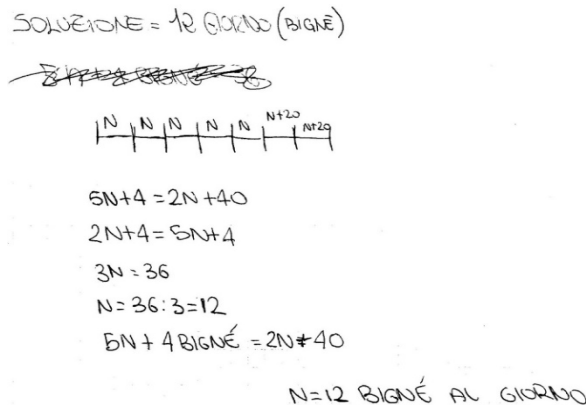 SOLUZIONE = 12 GIORNO (BIGNÈ)
N N N N N N+20 N+20
5N+4 = 2N+40
2N+4 = 5N+4
3N = 36
N = 36:3 = 12
5N + 4 BIGNÉ = 2N+40
N=12 BIGNÉ AL GIORNO